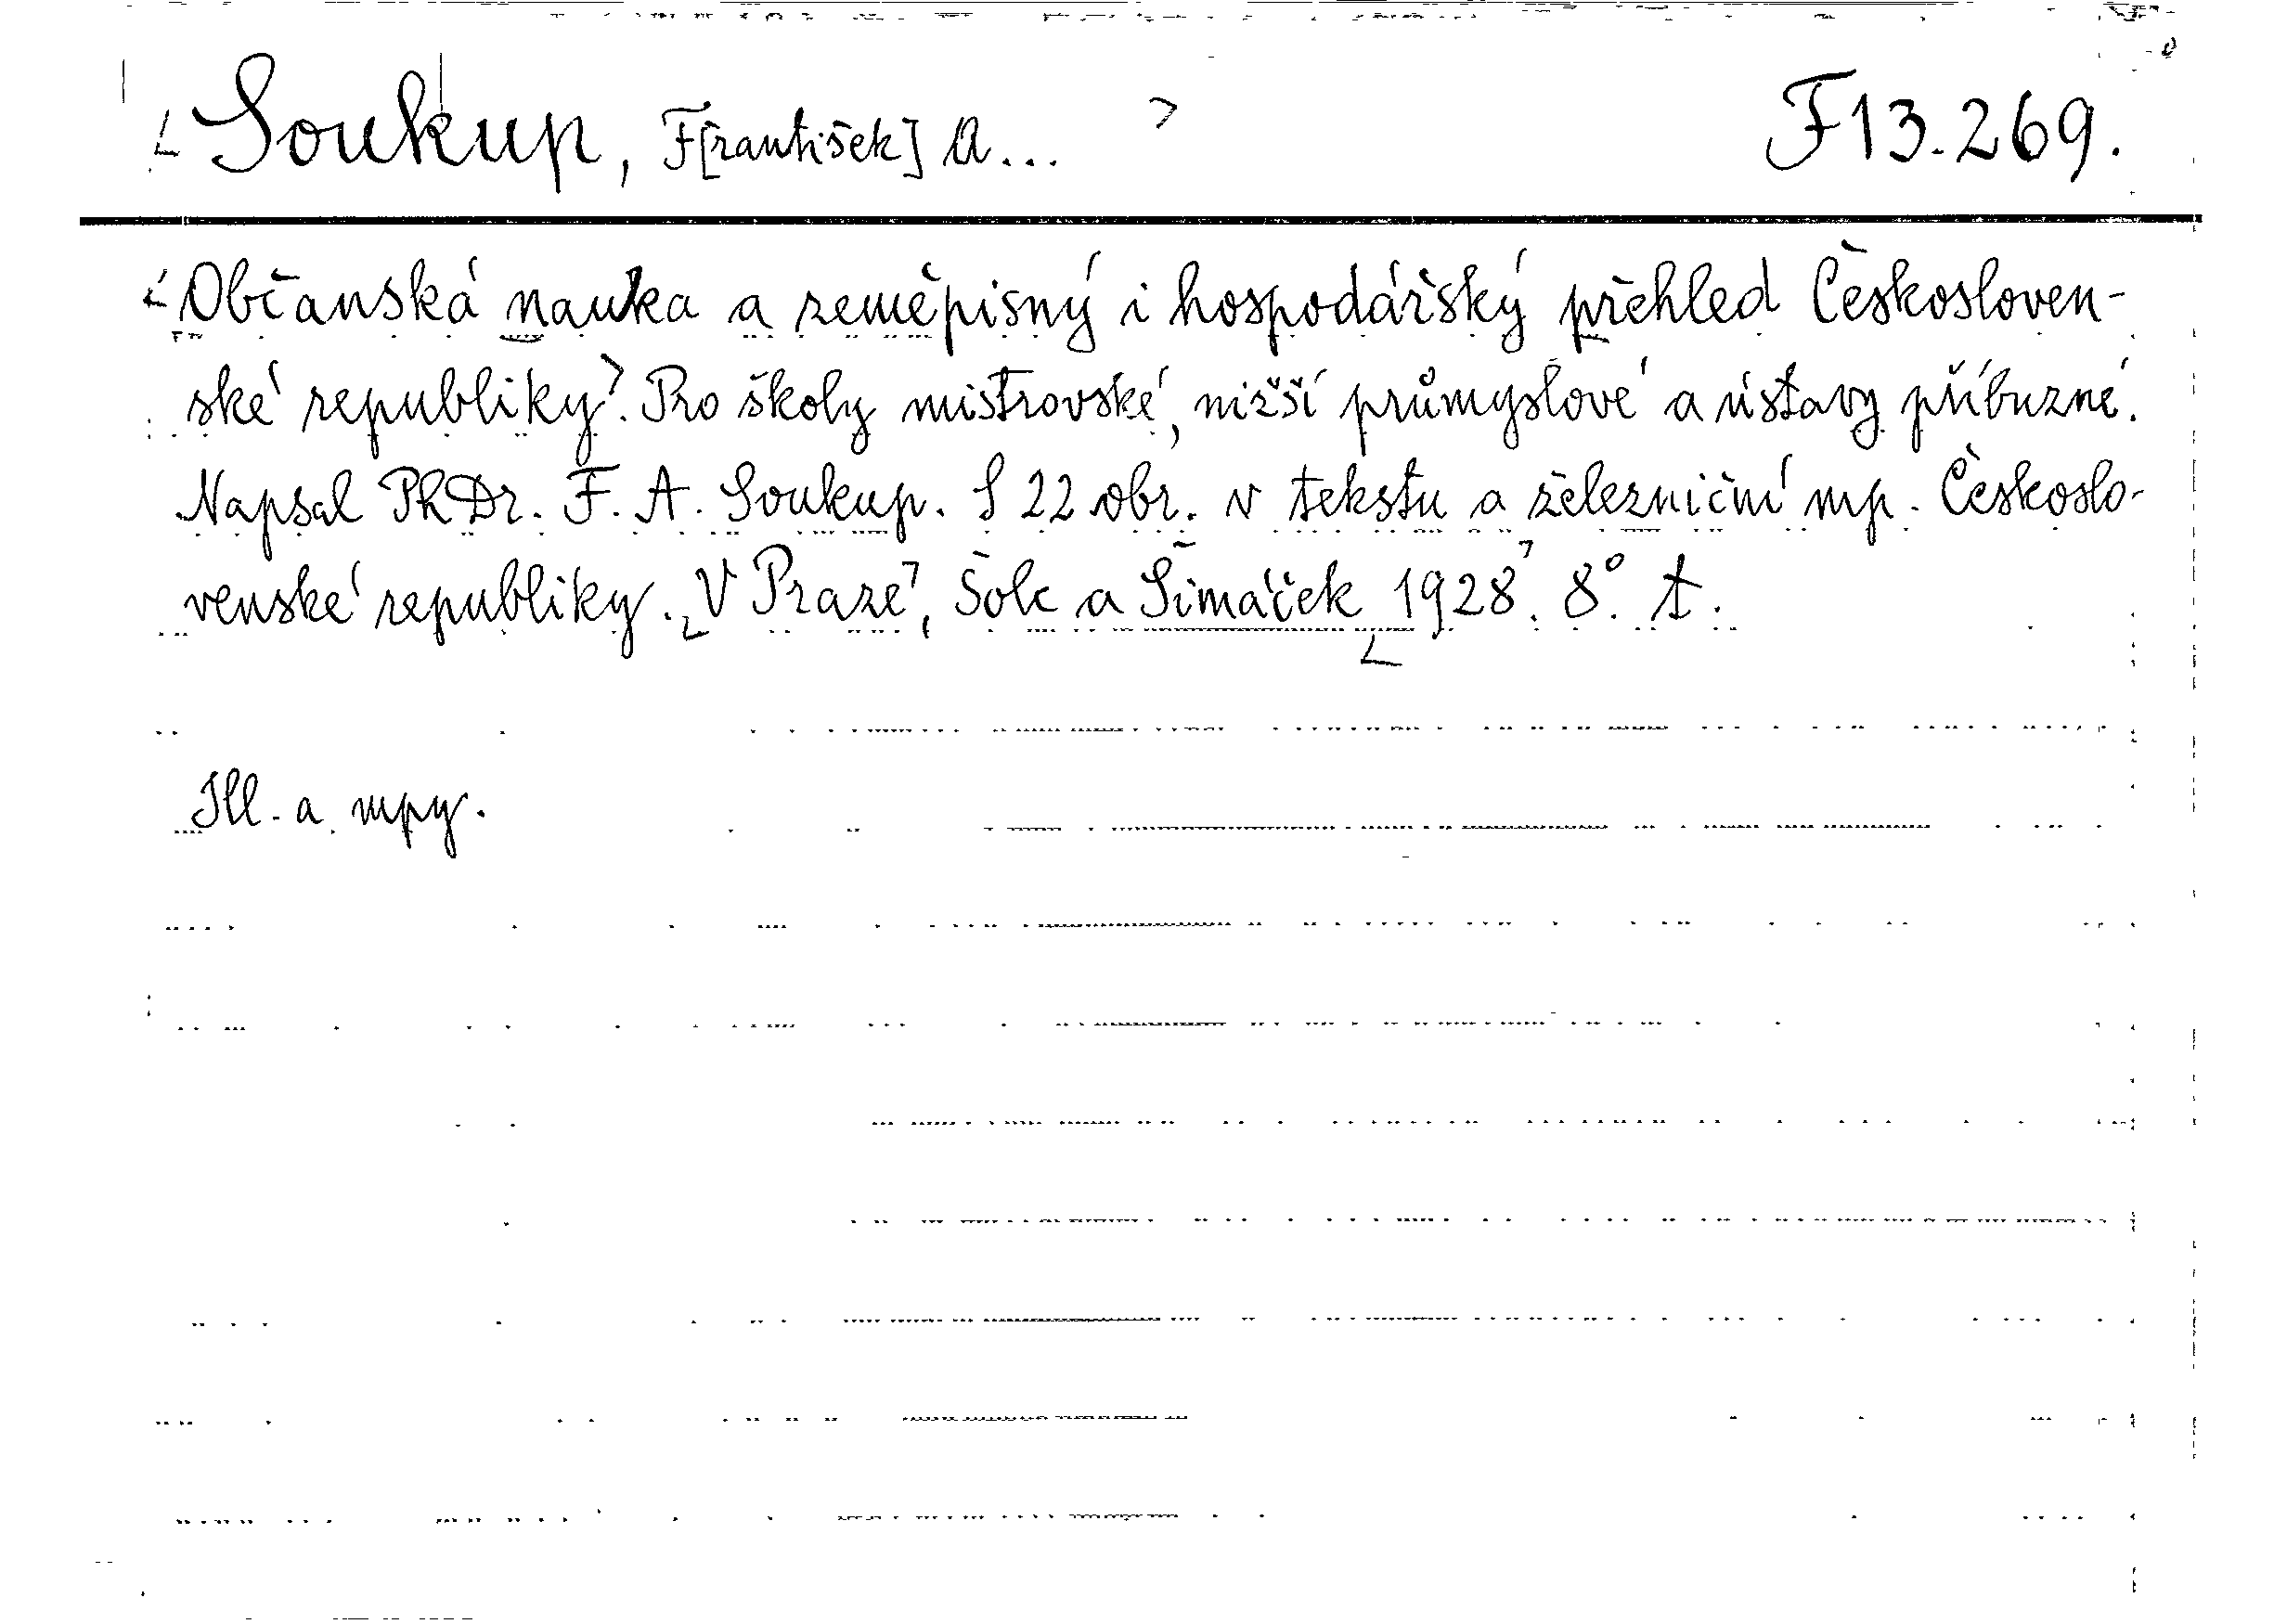 Soukup, F[rantišek] A... F 13.269.
Občanská nauka a zeměpisný i hospodářský přehled Českosloven-
ské republiky. Pro školy mistrovské, nižší průmyslové a ústavy příbuzné.
Napsal PhDr. F. A. Soukup. S 22 obr. v tekstu a železniční mp. Českoslo-
venské republiky. V Praze, Šolc a Šimáček 1928. 8°. t.
Ill. a mpy.